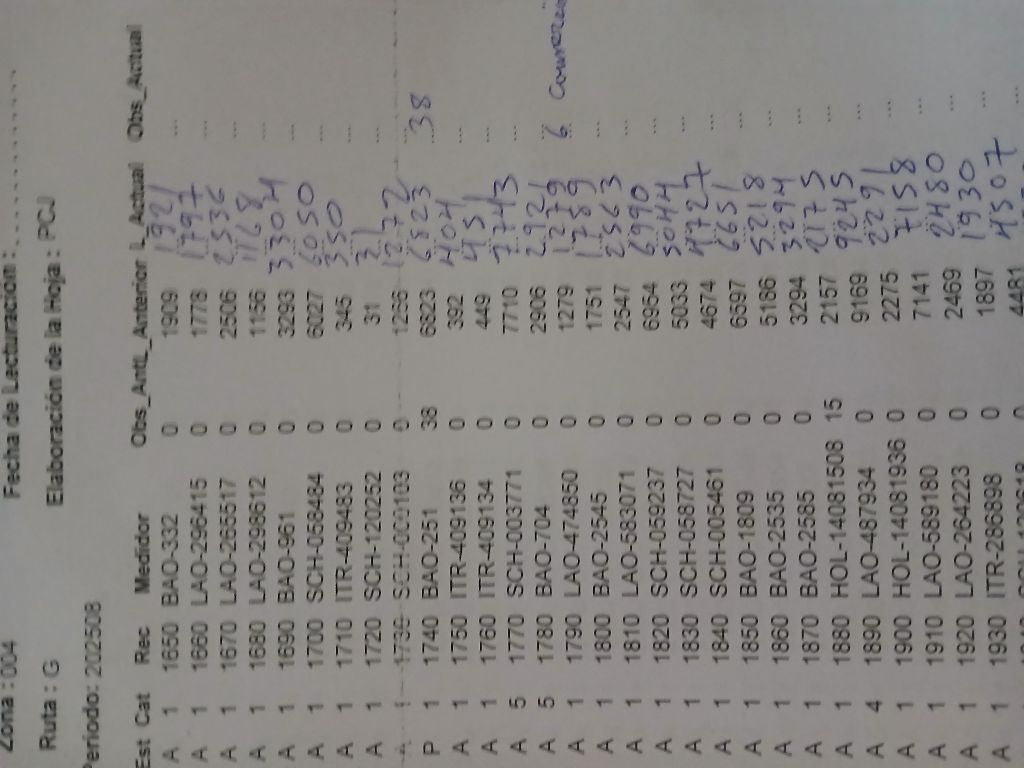 Zona : 004 Fecha de Lecturacion : . . . . . . . . . . . . . . .
Ruta : G Elaboración de la Hoja : PCJ
Periodo: 202508
Est Cat Rec Medidor Obs_AntL_Anterior L_Actual Obs_Actual
A 1 1650 BAO-332 0 1909 1921 ...
A 1 1660 LAO-296415 0 1778 1797 ...
A 1 1670 LAO-265517 0 2506 2536 ...
A 1 1680 LAO-298612 0 1156 1168 ...
A 1 1690 BAO-961 0 3293 3304 ...
A 1 1700 SCH-058484 0 6027 6050 ...
A 1 1710 ITR-409483 0 345 350 ...
A 1 1720 SCH-120252 0 31 31 ...
A 1 1730 0 1272 ...
P 1 1740 BAO-251 38 6823 38
A 1 1750 ITR-409136 0 392 404 ...
A 1 1760 ITR-409134 0 449 451 ...
A 5 1770 SCH-003771 0 7710 7743 ...
A 5 1780 BAO-704 0 2906 2921 ...
A 1 1790 LAO-474850 0 1279 6
A 1 1800 BAO-2545 0 1751 1789 ...
A 1 1810 LAO-5830071 0 2547 2563 ...
A 1 1820 SCH-059237 0 6954 6990 ...
A 1 1830 SCH-058727 0 5033 5044 ...
A 1 1840 SCH-005461 0 4674 4727 ...
A 1 1850 BAO-1809 0 6597 6651 ...
A 1 1860 BAO-2535 0 5186 5218 ...
A 1 1870 BAO-2585 0 3294 3294 ...
A 1 1880 HOL-14081508 15 2157 2175 ...
A 4 1890 LAO-487934 0 9169 9245 ...
A 1 1900 HOL-14081936 0 2275 2291 ...
A 1 1910 LAO-589180 0 7141 7158 ...
A 1 1920 LAO-264223 0 2469 2480 ...
A 1 1930 ITR-286898 0 1897 1930 ...
4481 4507 ...